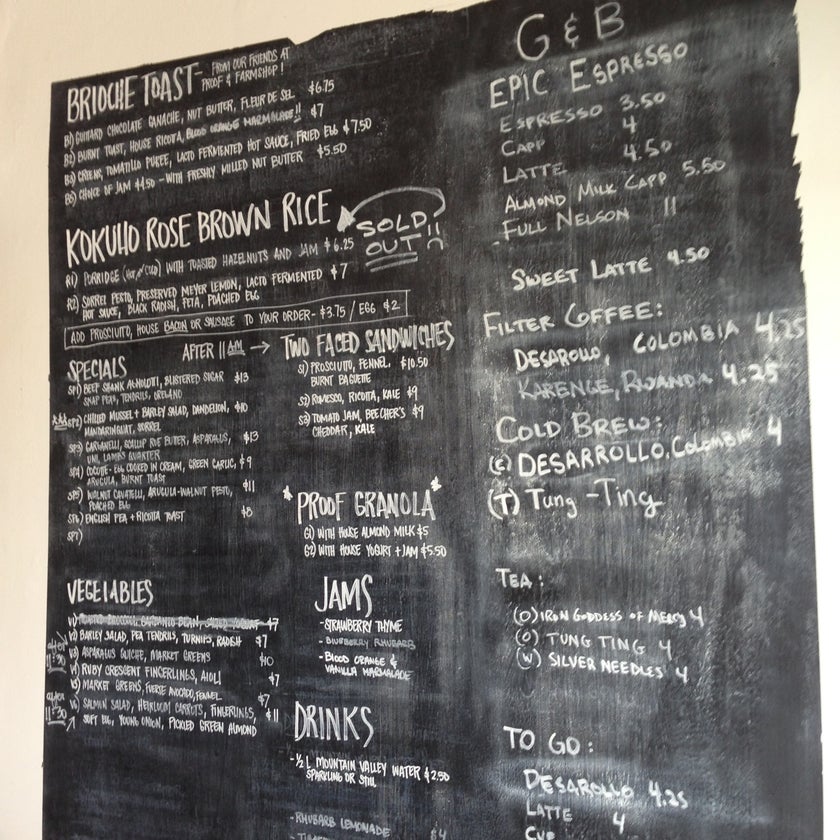 BRIOCHE TOAST- FROM OUR FRIENDS AT
PROOF & FARMSHOP!
B1) GUITTARD CHOCOLATE GANACHE, NUT BUTTER, FLEUR DE SEL $6.75
B2) BURNT TOAST, HOUSE RICOTTA, BLOOD ORANGE MARMALADE!! $7
B3) GREENS, TOMATILLO PUREE, LACTO FERMENTED HOT SAUCE, FRIED EGG $7.50
B5) CHOICE OF JAM $4.50 - WITH FRESHLY MILLED NUT BUTTER $5.50
KOKUHO ROSE BROWN RICE
SOLD
OUT!!
R1) PORRIDGE (HOT or COLD) WITH TOASTED HAZELNUTS AND JAM $6.25
R2) SORREL PESTO, PRESERVED MEYER LEMON, LACTO FERMENTED $7
HOT SAUCE, BLACK RADISH, FETA, POACHED EGG
ADD PROSCIUTTO, HOUSE BACON OR SAUSAGE TO YOUR ORDER- $3.75 / EGG $2
AFTER 11AM →
SPECIALS
SP1) BEEF SHANK AGNOLOTTI, BLISTERED SUGAR $13
SNAP PEAS, TENDRILS,
SP2) CHILLED MUSSEL + BARLEY SALAD, DANDELION, $10
MANDARINQUAT, SORREL
SP3) GARGANELLI, SCALLOP ROE BUTTER, ASPARAGUS, $13
UNI, LAMBS QUARTER
SP4) COCOTTE- EGG COOKED IN CREAM, GREEN GARLIC, $9
ARUGULA, BURNT TOAST
SP5) WALNUT CAVATELLI, ARUGULA-WALNUT PESTO, $11
POACHED EGG
SP6) ENGLISH PEA + RICOTTA TOAST $8
SP7)
TWO FACED SANDWICHES
S1) PROSCIUTTO, FENNEL, $10.50
BURNT BAGUETTE
S2) ROMESCO, RICOTTA, KALE $9
S3) TOMATO JAM, BEECHER'S $9
CHEDDAR, KALE
"PROOF GRANOLA"
G1) WITH HOUSE ALMOND MILK $5
G2) WITH HOUSE YOGURT + JAM $5.50
VEGETABLES
V1) $7
V2) BARLEY SALAD, PEA TENDRILS, TURNIPS, RADISH $7
after
11:30
V3) ASPARAGUS QUICHE, MARKET GREENS $10
V4) RUBY CRESCENT FINGERLINGS, AIOLI $7
V5) MARKET GREENS, FUERTE AVOCADO, FENNEL $7
after
11:30
V6) SALMON SALAD, HEIRLOOM CARROTS, FINGERLINGS, $11
SOFT EGG, YOUNG ONION, PICKLED GREEN ALMOND
JAMS
- STRAWBERRY THYME
- BLUEBERRY RHUBARB
- BLOOD ORANGE &
VANILLA MARMALADE
DRINKS
- ½ L MOUNTAIN VALLEY WATER $2.50
SPARKLING OR STILL
- RHUBARB LEMONADE $4
G & B
EPIC ESPRESSO
ESPRESSO 3.50
CAPP 4
LATTE 4.50
ALMOND MILK CAPP 5.50
- FULL NELSON 11
SWEET LATTE 4.50
FILTER COFFEE:
DESAROLLO, COLOMBIA 4.25
KARENGE, RWANDA 4.25
COLD BREW:
(C) DESARROLLO, Colombia 4
(T) Tung-Ting
TEA:
(O) IRON GODDESS OF MERCY 4
(O) TUNG TING 4
(W) SILVER NEEDLES 4
TO GO:
DESAROLLO 4.25
LATTE 4